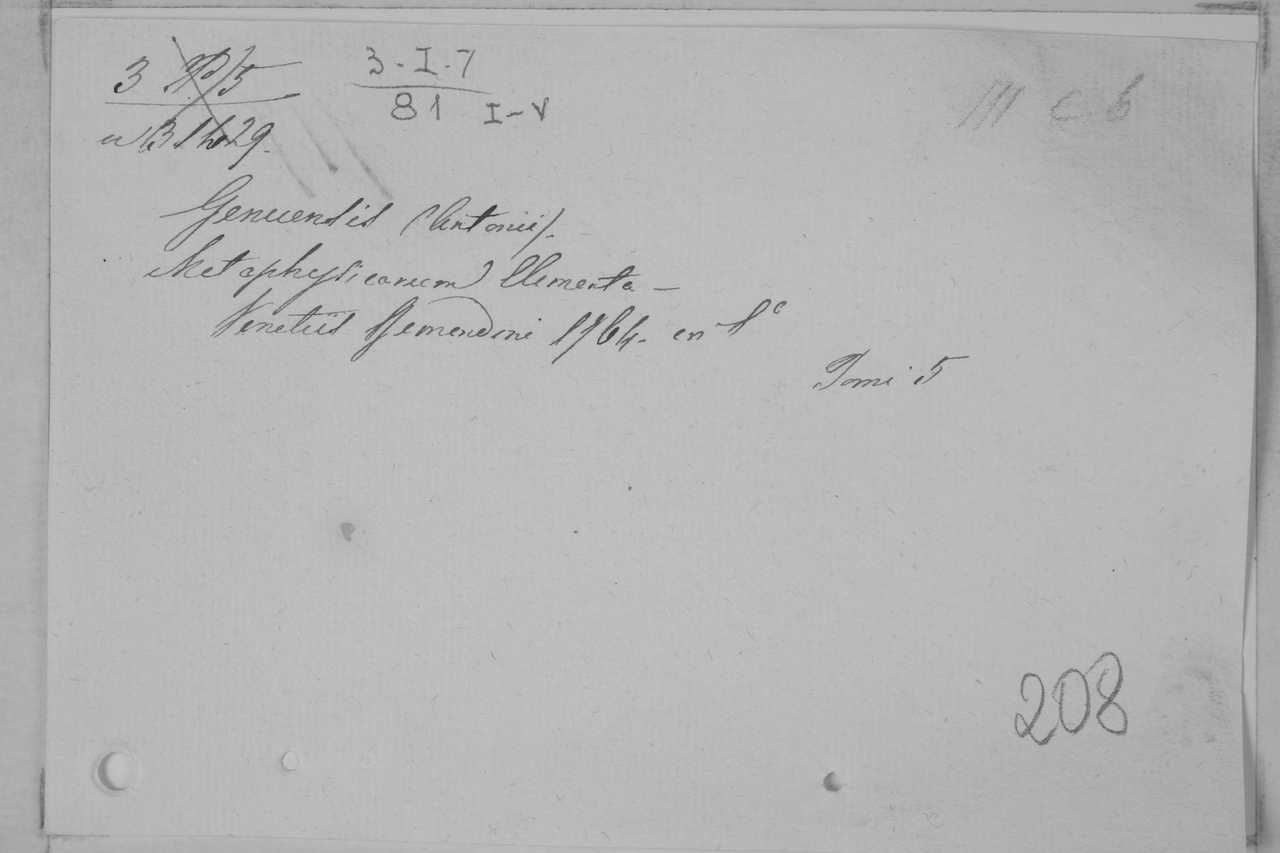 3 - I - 7
81 I-V
III c 6
Genuensis (Antonii).
Metaphysicarum Elementa -
Venetiis Remondini 1764. in 8º
Tomi 5
208